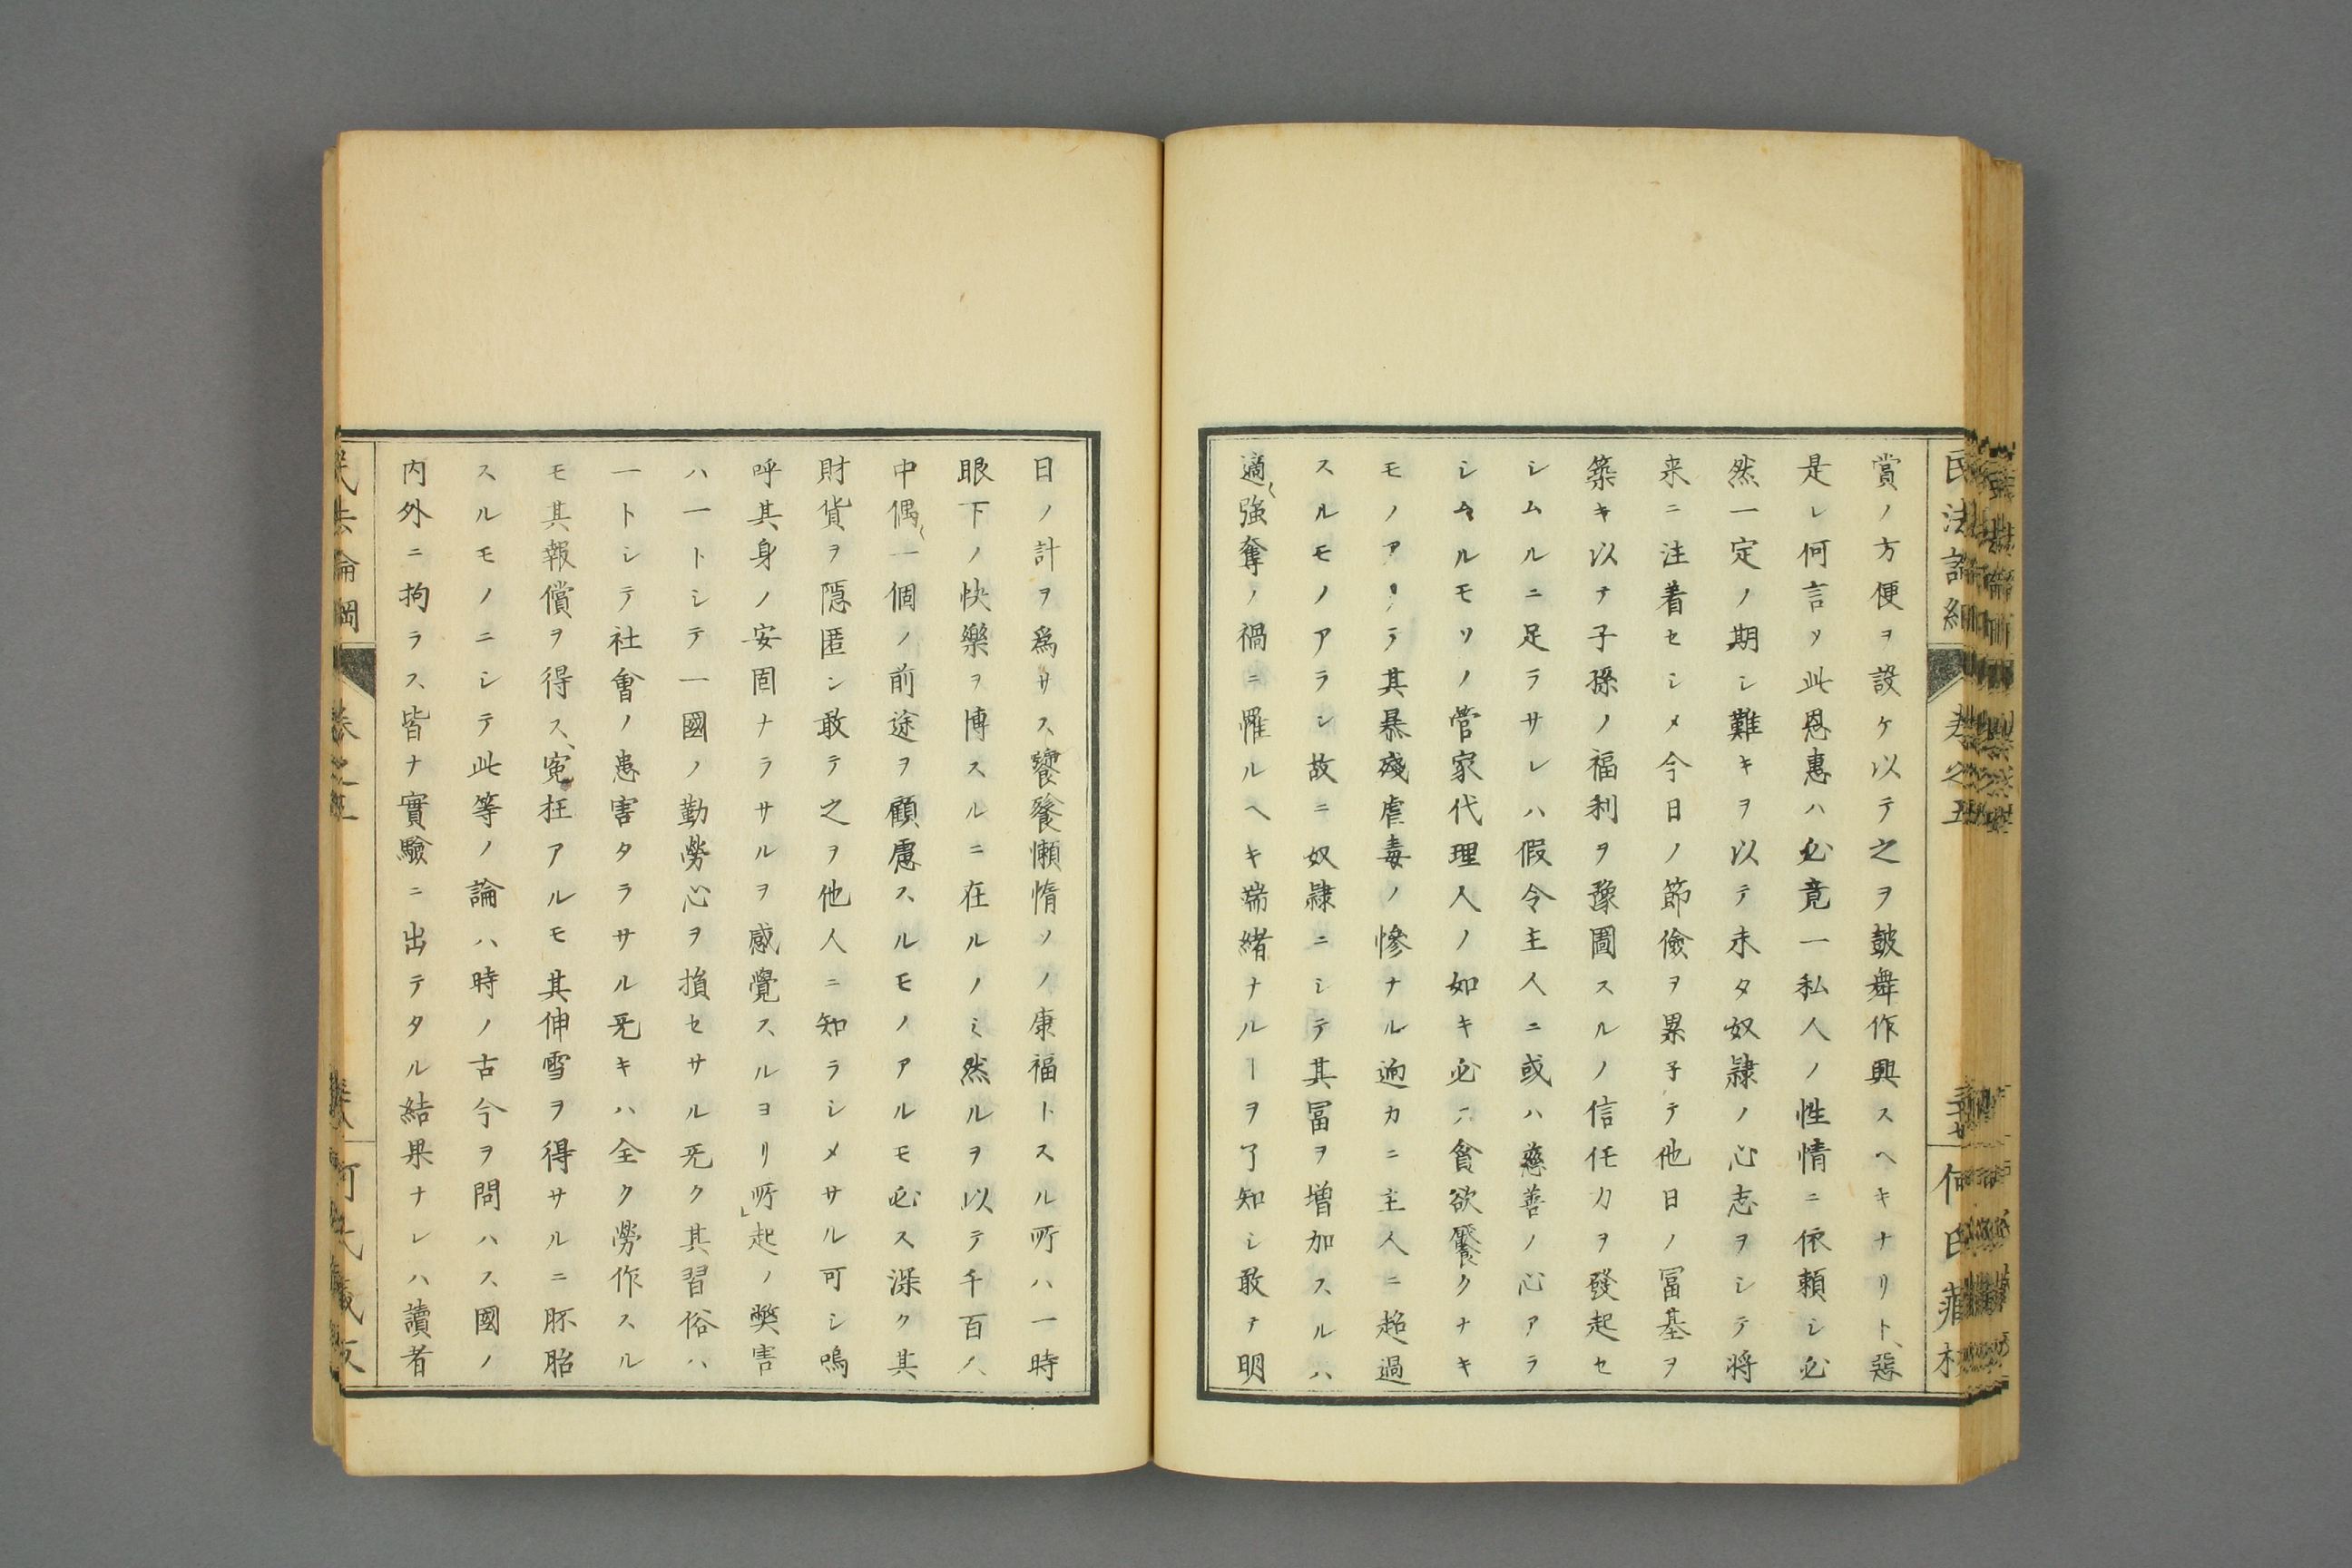 民法論綱
卷之五
何氏藏
賞ノ方便ヲ設ケ以テ之ヲ皷舞作興スヘキナリト、惡
是レ何言ソ此恩惠ハ必竟一私人ノ性情ニ依頼シ必
然一定ノ期シ難キヲ以テ未タ奴隷ノ心志ヲシテ将
来ニ注着セシメ今日ノ節儉ヲ累子テ他日ノ冨基ヲ
築キ以テ子孫ノ福利ヲ豫圖スルノ信任力ヲ發起セ
シムルニ足ラサレハ假令主人ニ或ハ慈善ノ心アラ
シムルモソノ管家代理人ノ如キ必ニ貪欲饜クナキ
モノアリテ其暴殘虐毒ノ慘ナル逈カニ主人ニ超過
スルモノアラン故ニ奴隷ニシテ其冨ヲ增加スルハ
適〻強奪ノ禍ニ罹ルヘキ端緒ナルヿヲ了知シ敢テ明
日ノ計ヲ爲サス、饕餮懶惰ソノ康福トスル所ハ一時
眼下ノ快樂ヲ博スルニ在ルノミ然ルヲ以テ千百人
中偶〻一個ノ前途ヲ顧慮スルモノアルモ必ス深ク其
財貨ヲ隱匿シ敢テ之ヲ他人ニ知ラシメサル可シ嗚
呼其身ノ安固ナラサルヲ感覺スルヨリ所起ノ樊害
ハ一トシテ一國ノ勤勞心ヲ損セサル旡ク其習俗ハ
一トシテ社會ノ患害タラサル旡キハ全ク勞作スル
モ其報償ヲ得ス、寃枉アルモ其伸雪ヲ得サルニ胚胎
スルモノニシテ此等ノ論ハ時ノ古今ヲ問ハス國ノ
内外ニ拘ラス、皆ナ實驗ニ出テタル結果ナレハ讀者
民法論綱
卷之五
何氏藏